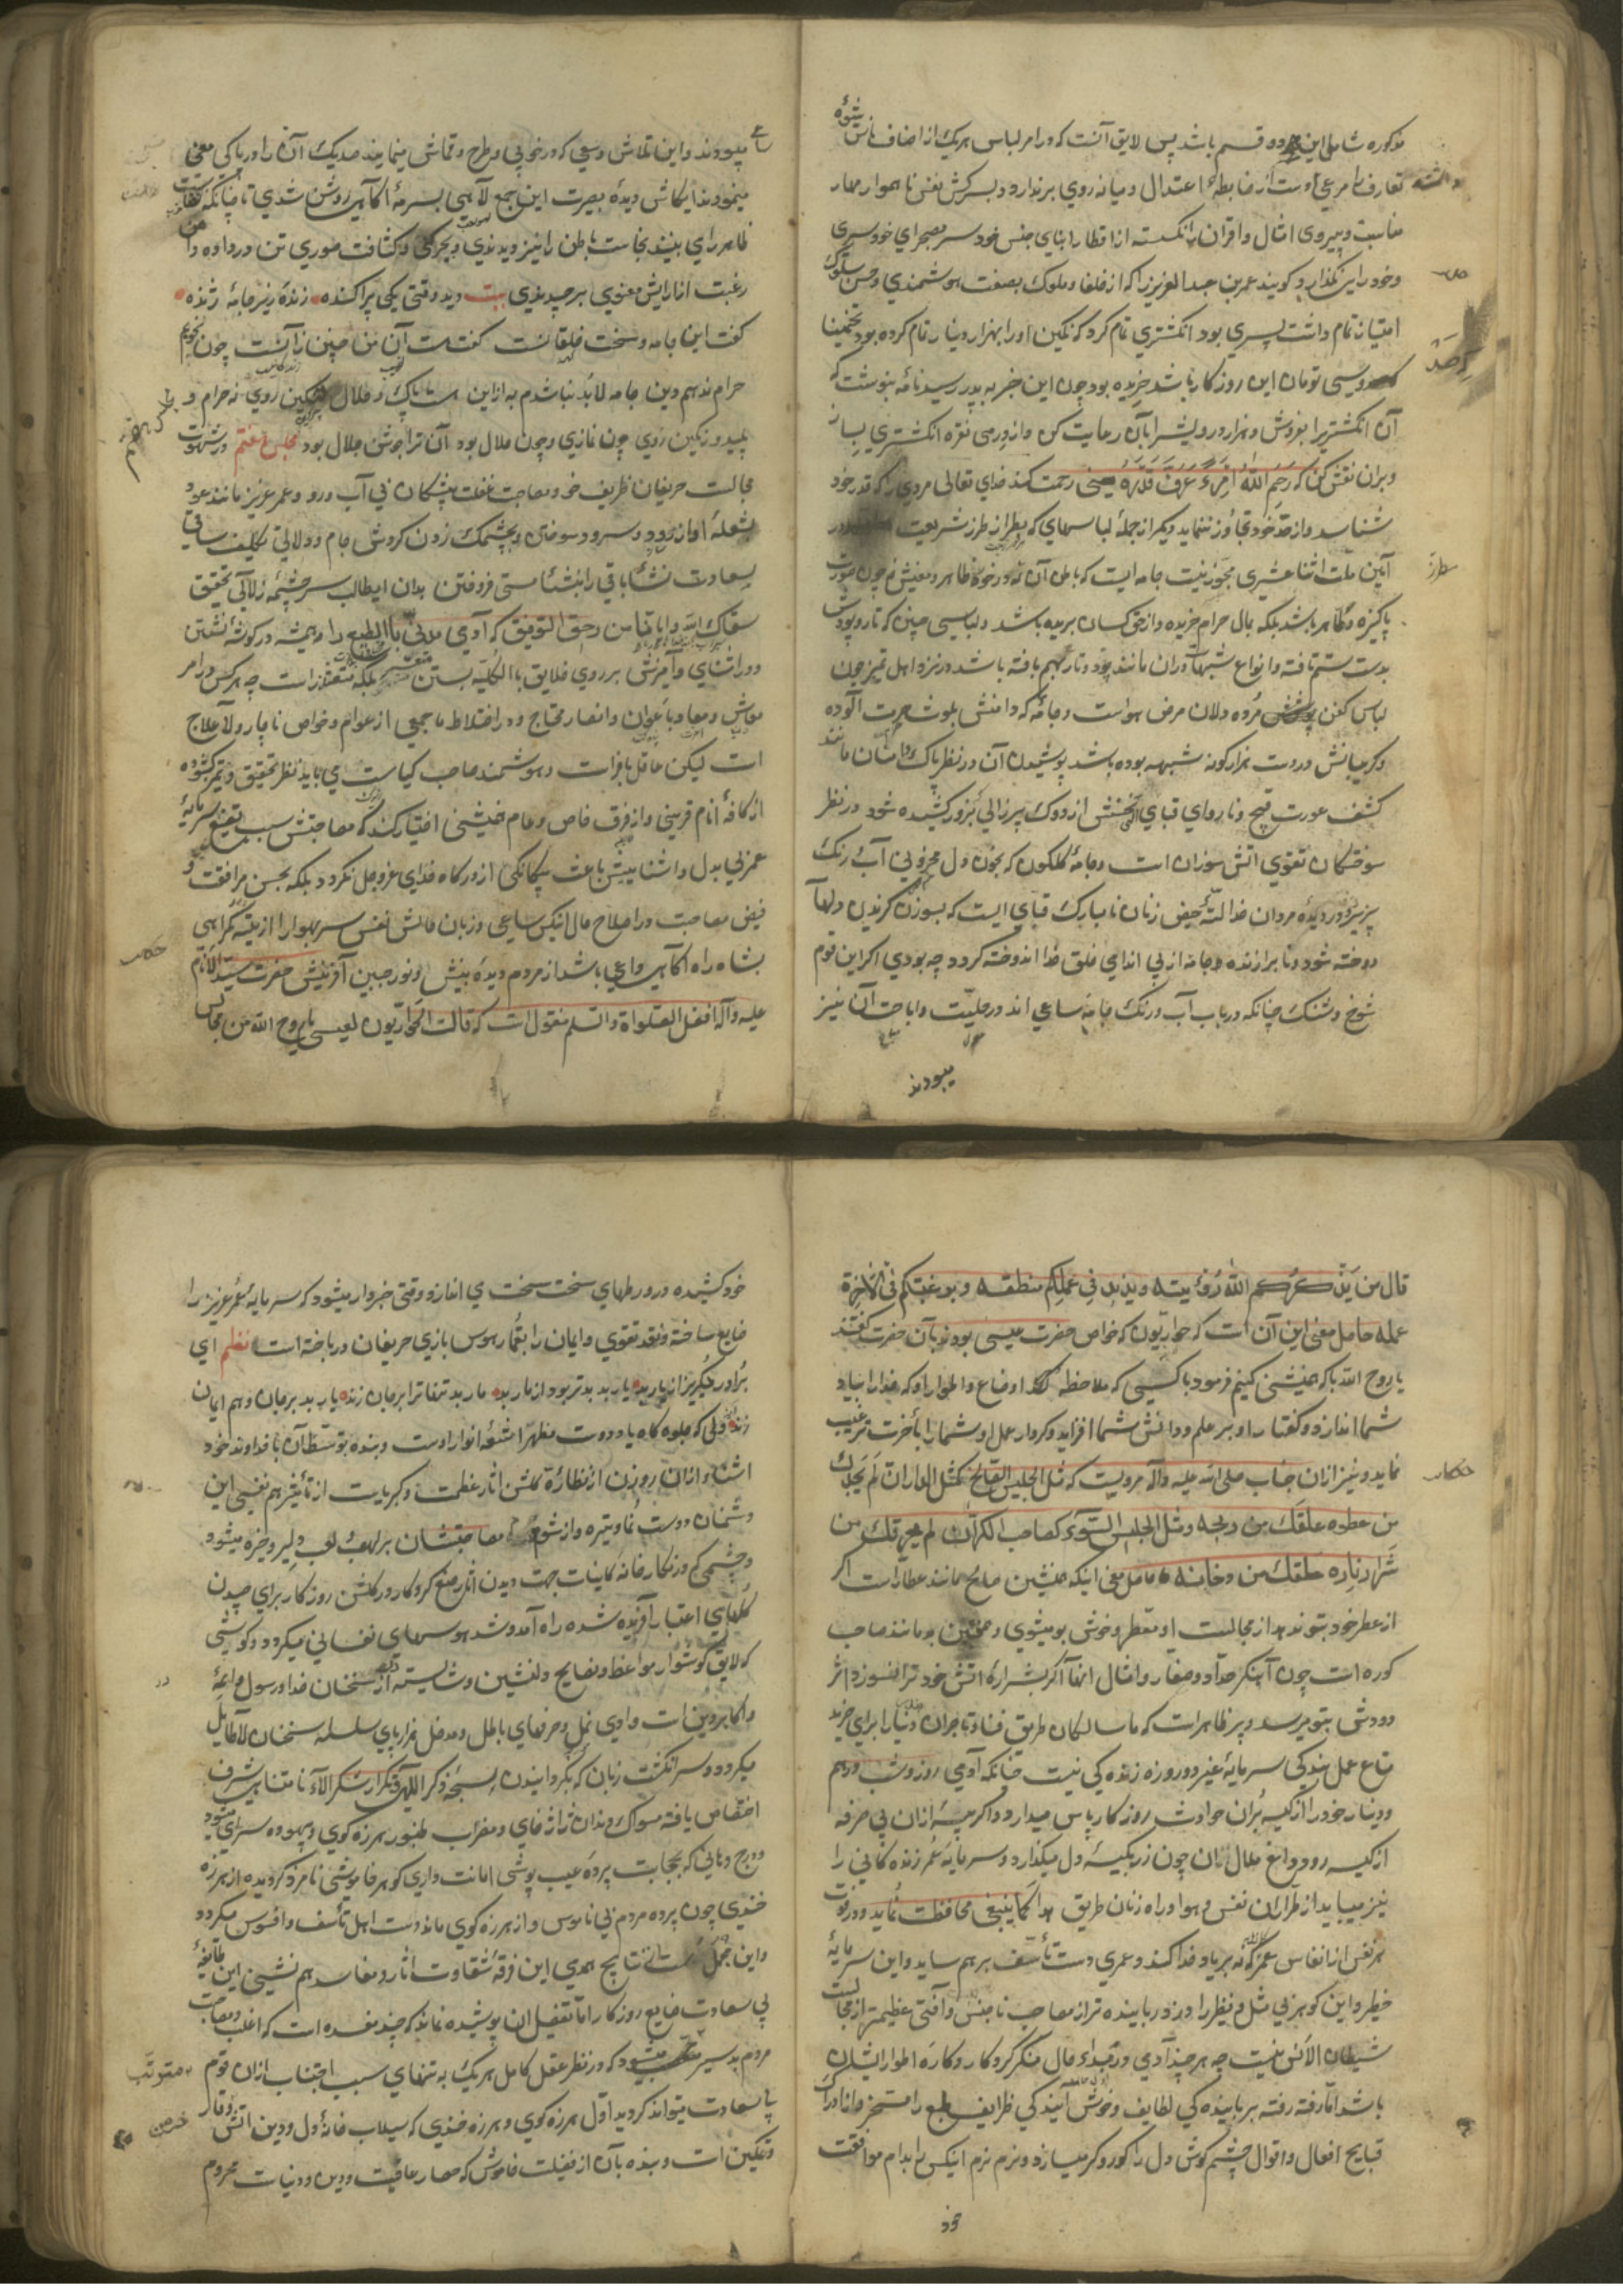 مذکوره شامل این دو قسم باشد پس لایق آنست که در امر لباس هر یک از اصناف ناس شیوهٔ
تعارف را مرعی داشته دست از ضابطهٔ اعتدال و میانه روی برندارد و بسرکش نفس ناهموار مهار
مناسبت و پیروی امثال و اقران را نکسسته از اقطار ابنای جنس خود سر بصحرای خودسری
و خودرایی نکذارد و کویند عمر بن عبد العزیز را که از خلفا و ملوک بصفت هوشمندی و حسن سلوک
امتیاز تمام داشت پسری بود انکشتری تمام کرد که نکین او را بهزار دینار تمام کرده بود تخمینا
سی تومان این روزکار باشد خریده بود چون این خبر به پدر رسید نامه بنوشت که
آن انکشتری را بفروش و هزار درویش را بآن رعایت کن و از درمی نقره انکشتری بساز
و بران نقش کن که رَحِمَ اللّهُ اِمْرَءً عَرَفَ قَدْرَهُ یعنی رحمت کند خدای تعالی مردی را که قدر خود
شناسد و از حدّ خود تجاوز ننماید دیکر از جملهٔ لباسهای که بطراز طرز شریعت
آیین ملت اثنا عشری مجوّز نیست جامه ایست که باطن آن نه در خور ظاهر و معنیش نه چون صورت
پاکیزه و طاهر باشد بلکه بمال حرام خریده و از حق کسان بریده باشد و لباسی چنین که تار و پودش
بدست ستم تافته و انواع شبهات دران مانند پود و تار بهم بافته باشد در نزد اهل تمیز چون
لباس کفن پوشش مرده دلان مرض هواست و جامهٔ که دامنش بلوث حرمت آلوده
و کریبانش در دست هزار کونه شبهه بوده باشد پوشیدن آن در نظر پاک دامنان مانند
کشف عورت قبیح و ناروای قبای که نخش از دوک پیرزالی بزور کشیده شود در نظر
سوختکان تقوی اتش سوزان است و جامهٔ کلکون که بخون دل محزونی آب و رنک
پذیرد در دیدهٔ مردان خدا لتّهٔ حیض زنان نامبارک قبای ایست که بسوزن کزندن دلها
دوخته شود و نابرازنده جامه از پی اندای خلق خدا اندوخته کردد چه بودی اکر این قوم
شوخ و شنک چنانکه در باب آب و رنک جامه ساعی اند در حلیّت و اباحت آن نیز
میبودند
میبودند و این تلاش و سعی که در خوبی و طرح و قماش مینمایند صد یک آن را در پاکی معنی
مینمودند ایکاش دیدهٔ بصیرت این جمع لاهی بسرمهٔ اکاهی روشن شدی تا چنانکه
ظاهر رامی بینند نجاست باطن را نیز دیدندی و بچرکی و کثافت صوری تن در داده دامن
رغبت از ارایش معنوی برچیدندی بیت دید وقتی یکی پراکنده زندهٔ زیر جامهٔ ژنده
کفت این جامه سخت خلقانست کفت هست آن من چنین زانست چون نجویم
حرام ندهم دین جامه لابد نباشدم به ازین هست پاک و حلال ننکین روی نه حرام و
پلید و رنکین روی چون نمازی و چون حلال بود آن مرا جوشن جلال بود مجلس هفتم در شهوت
مجالست حریفان ظریف خو و مصاحبت غفلت پیشکان بی آب و رو و عمر عزیز مانند عود
بشعلهٔ اواز رود و سرود سوختن و بچشمک زدن کردش جام و ولائی تکلیف ساقی
بسعادت نشأ باقی را بنشئا مستی فروختن بدان ایطالب سرچشمهٔ زلال تحقیق
سقاک الله و ایانا من رحیق التوفیق که آدمی مدنی بالطبع را همیشه در کوشه نشستن
و در اشنای و آمیزش بر روی خلایق بالکلیه بستن بلکه متعذر است چه هر کس در امر
معاش و معاد باعوان و انصار محتاج و در اختلاط با جمعی از عوام و خواص ناچار و لا علاج
است لیکن عاقل با فراست و هوشمند صاحب کیاست می باید نظر تحقیق و تمیز کشوده
از کافهٔ انام قرینی و از فرق خاص و عام همنشینی اختیار کند که مصاحبتش سبب تضییع سرمایهٔ
عمر بی بدل و اشنائیش باعث بیکانکی از درکاه خدای عزوجل نکردد بلکه بحسن مرافقت و
فیض مصاحبت در اصلاح حال انیکس ساعی و زبان مالش نفس سر بهوا را از بیشهٔ کمراهی
بشاه راه اکاهی داعی باشد از مردم دیدهٔ بینش و نور جبین آفرینش حضرت سید الانام
علیه و آله افضل الصلواة و السلم منقول است که قالت الحواریون لعیسی یا روح الله من نجالس
قال من یذکرکم الله رؤیته و یزید فی علمکم منطقه و یرغبکم فی الاخرة
عمله حاصل معنی این آن است که حواریون که خواص حضرت عیسی بودند بآن حضرت کفتند
یا روح الله با که همنشینی کنیم فرمود با کسی که ملاحظه اوضاع و اطوار او که خدا را بیاد
شما اندازد و کفتار او بر علم و دانش شما افزاید و کردار عمل او شما را بآخرت ترغیب
نماید و نیز ازان جناب صلی الله علیه و آله مرویست که مثل الجلیس الصالح کمثل الداران لم یجدک
من عطره علقک من ریحه و مثل الجلیس السوء کصاحب الکیران لم یحرقک من
شرار ناره علقک من دخانه حاصل معنی اینکه همنشین صالح مانند عطّار است اکر
از عطر خود بتو ندهد از مجالست او معطر و خوش بو میشوی و همنشین بد مانند صاحب
کوره است چون آهنکر حدّاد و صفّار و امثال انها اکر بشرارهٔ اتش خود ترا نسوزد اثر
دودش بتو میرسد و پر ظاهر است که ما سالکان طریق فنا و تاجران دنیا را برای خرید
متاع عمل بندکی سرمایهٔ غیر دو روزه زنده کی نیست چنانکه آدمی روز و شب درهم
و دینار خود را از کیسه بران حوادث روزکار پاس میدارد و اکر حبهٔ ازان بی صرفه
از کیسه رود داغ ملال ازان چون زر بکیسهٔ دل میکذارد و سرمایه عمر زنده کانی را
نیز میباید از طرّاران نفس و هوا و راه زنان طریق هدا کما ینبغی محافظت نماید و در فوت
هر نفس از انفاس عمر که نه بر یاد خدا کند و عمری دست تأسّف بر هم ساید و این سرمایهٔ
خطیر و این کوهر بی مثل و نظیر را دزد رباینده تر از مصاحب ناجنس و آفتی عظیمتر از مجالست
شیطان الانس نیست چه هر چند آدمی در مبداء حال منکر کردکار و کارهٔ اطوار ایشان
باشد امّا رفته رفته بربایندکی لطایف و خوش آیندکی ظرایف طبع را مسخّر و از ادراک
قبایح افعال و اقوال چشم کوش دل را کور و کر میسازد و نرم نرم اینکس را بدام موافقت
خود
خود کشیده در ورطهای سخت سخت می اندازد وقتی خبردار میشود که سرمایهٔ عمر عزیز را
ضایع ساخته و نقد تقوی و ایمان را بقمار هوس بازی حریفان درباخته است نظم ای
برادر میکریز از یار بد یار بد بدتر بود از مار بد مار بد تنها ترا بر جان زند یار بد بر جان و هم ایمان
زند دلی که جلوه کاه یاد دوست مظهر اشعهٔ انوار اوست و بنده بتوسّط آن با خداوند خود
اشنا و ازان روزن از نظارهٔ کلشن اثار عظمت و کبریاست از تأثیر هم نفسی این
دشمنان دوست نما و تیره و از مصاحبتشان بر لهو و لعب دلیر و خیره میشود
و چشمی که در نکارخانه کاینات جهت دیدن اثر صنع کردکار و در کلشن روزکار برای چیدن
کلهای اعتبار آفریده شده راه آمد و شد هوسهای نفسانی میکردد و کوشی
که لایق کوشوار مواعظ و نصایح دلنشین و شایسته از سخنان خدا و رسول و ائمهٔ
و اکابر دین است وادی نمل و حرفهای باطل و مدخل هزار پای سلسله سخنان لا طایل
میکردد و سر انکشت زبان که بکردانیدن سبحهٔ ذکر اللّهی و تکرار شکر آلاء نامتناهی شرف
اختصاص یافته مسواک دندان ژاژ خای و مضراب طنبور هرزه کوی و بیهوده سرای میشود
و درج دهانی که بحجابت پردهٔ عیب پوشی امانت داری کوهر خاموشی نامزد کردیده از هرزه
خندی چون پرده مردم بی ناموس و از هرزه کوی مانند دست اهل تأسف و افسوس میکردد
و این جمله نتایج همدمی این فرقهٔ شقاوت اثار و مفاسد هم نشینی این طایفهٔ
بی سعادت ضایع روزکار امّا تفصیل ان پوشیده نماند که چند مفسده است که اغلب بمصاحبت
مردم بد سیر میشود که در نظر عقل کامل هر یک به تنهای سبب اجتناب ازان قوم
بی سعادت میتواند کردید اوّل هرزه کوی و هرزه خندی که سیلاب خانهٔ دل و دین اتش وقار
و تمکین است و بنده بآن از فضیلت خاموشی که حصار عافیت و دین و دنیاست محروم